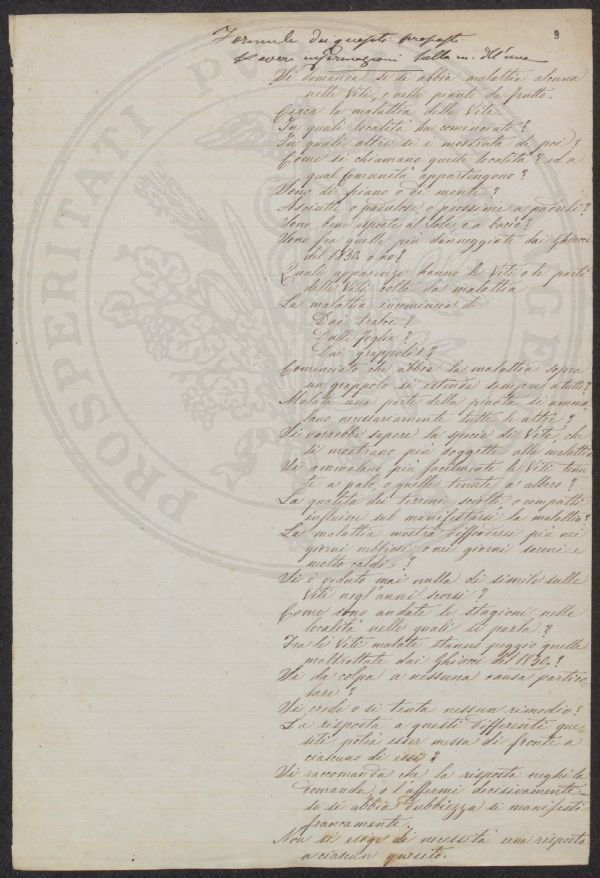 9
Formule dei quesiti proposti
Si domanda se si abbia malattia alcuna
nelle Viti, o nelle piante da frutto.
Circa la malattia della Vite.
In quali località ha cominciato?
In quali altre si è mostrata di poi?
Come si chiamano queste località? ed a
qual Comunità appartengono?
Sono di piano o di monte?
Asciutte, o padulose, o prossime a paduli?
Sono bene esposte al Sole, o a bacìo?
Sono fra quelle più danneggiate dai Ghiacci
del 1850. o no?
Quale apparenze hanno le Viti o le parti
delle Viti colte da malattia
La malattia incomincia
Dai tralci?
Dalle foglie?
Dai grappoli?
Cominciato che abbia la malattia sopra
un grappolo si estende sempre a tutti?
Malata una parte della pianta si amma-
lano necessariamente tutte le altre?
Si vorrebbe sapere la specie di Vite, che
si mostrano più soggette alla malattia
Si ammalano più facilmente le Viti tenu-
te a palo, o quelle tenute a albero?
La qualità dei terreni sciolti, o compatti
influisce sul manifestarsi la malattia?
La malattia mostra diffondersi più nei
giorni nebbiosi, o nei giorni sereni e
molto caldi?
Si è veduto mai nulla di simile sulle
Viti negl'anni scorsi?
Come sono andate le stagioni nelle
località nelle quali si parla?
Fra le Viti malate stanno peggio quelle
maltrattate dai Ghiacci del 1850.?
Si da colpa a nessuna causa partico-
lare?
Si crede o si tenta nessun rimedio?
La risposta a questi differenti que-
siti potrà esser messa di fronte a
ciascuno di essi?
Si raccomanda che la risposta neghi la
domanda, o l'affermi decisivamente
se si abbia dubbiezza si manifesti
francamente.
Non si esige di necessità una risposta
a ciascun quesito.
PROSPERITATI PUBLICAE AUGENDAE